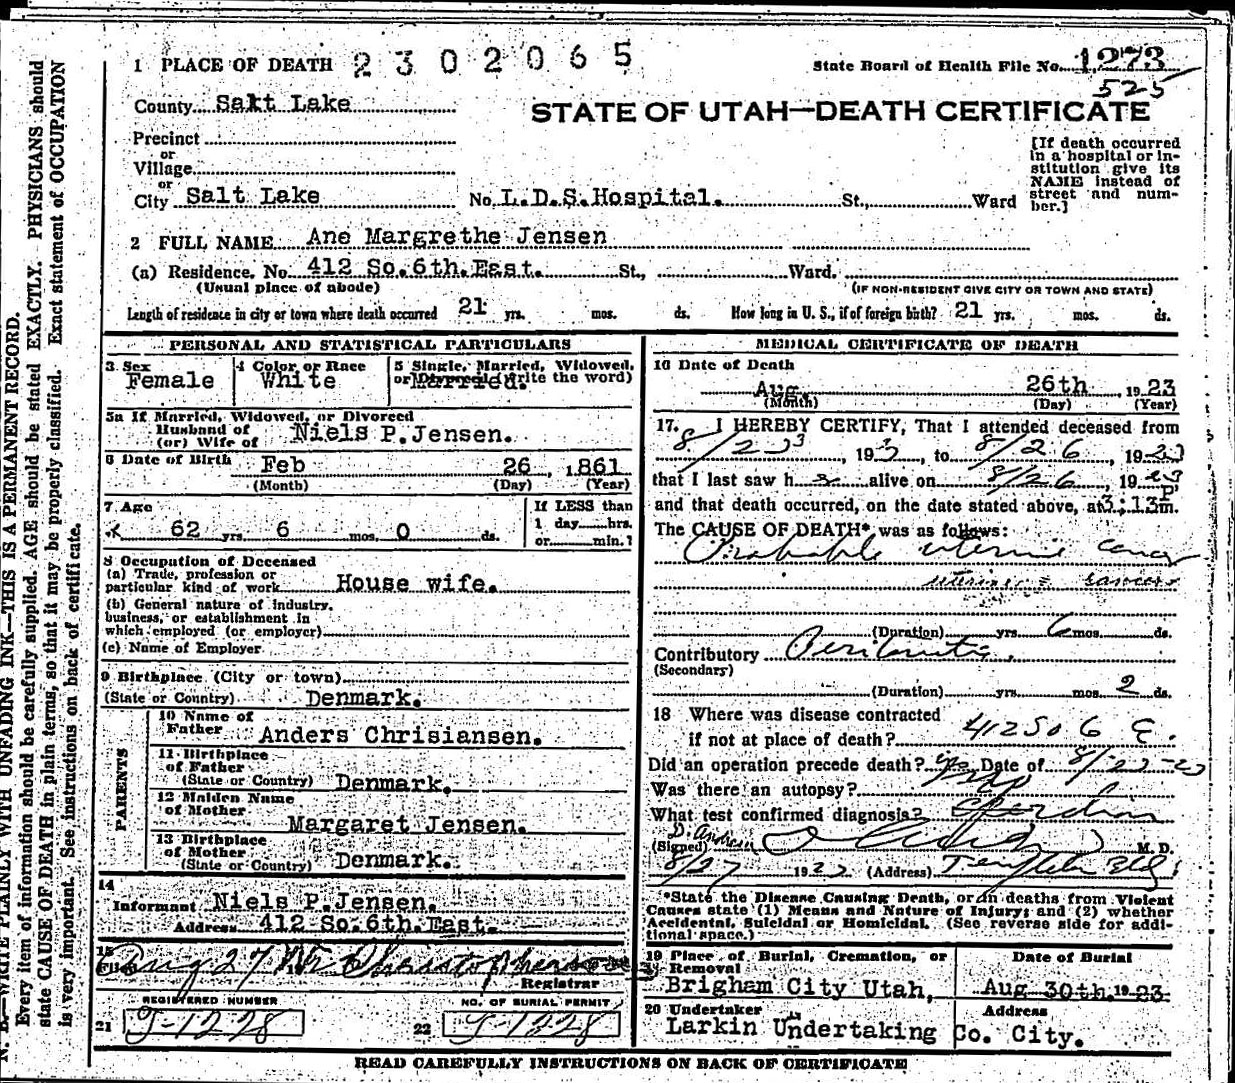 1 PLACE OF DEATH 2302065
State Board of Health File No. 1273
525
County Salt Lake
STATE OF UTAH—DEATH CERTIFICATE
Precinct
or
Village
or
City Salt Lake No. L.D.S. Hospital. St., Ward
[If death occurred
in a hospital or in-
stitution give its
NAME instead of
street and num-
ber.]
2 FULL NAME Ane Margrethe Jensen
(a) Residence. No. 412 So. 6th. East. St., Ward.
(Usual place of abode) (IF NON-RESIDENT GIVE CITY OR TOWN AND STATE)
Length of residence in city or town where death occurred 21 yrs. mos. ds. How long in U. S., if of foreign birth? 21 yrs. mos. ds.
PERSONAL AND STATISTICAL PARTICULARS
3 Sex
Female
4 Color or Race
White
5 Single, Married, Widowed,
or Divorced (write the word)
Married.
5a If Married, Widowed, or Divorced
Husband of
(or) Wife of Niels P. Jensen.
6 Date of Birth Feb 26, 1861
(Month) (Day) (Year)
7 Age
62 yrs. 6 mos. 0 ds.
If LESS than
1 day hrs.
or min.?
8 Occupation of Deceased
(a) Trade, profession or
particular kind of work House wife.
(b) General nature of industry,
business, or establishment in
which employed (or employer)
(c) Name of Employer
9 Birthplace (City or town)
(State or Country) Denmark.
PARENTS
10 Name of
Father Anders Chrisiansen.
11 Birthplace
of Father
(State or Country) Denmark.
12 Maiden Name
of Mother
Margaret Jensen.
13 Birthplace
of Mother
(State or Country) Denmark.
14
Informant Niels P. Jensen.
Address 412 So. 6th. East.
15
Filed Aug 27 19 Christopherson
Registrar
REGISTERED NUMBER
21 J-1228
NO. OF BURIAL PERMIT
22 J-1228
MEDICAL CERTIFICATE OF DEATH
16 Date of Death
Aug. 26th, 1923
(Month) (Day) (Year)
17. I HEREBY CERTIFY, That I attended deceased from
8/23, 1923, to 8/26, 1923
that I last saw h alive on 8/26, 1923
and that death occurred, on the date stated above, at 3:13 P m.
The CAUSE OF DEATH* was as follows:
Probable uterine cancer
uterine cancer
(Duration) yrs. 6 mos. ds.
Contributory Peritonitis.
(Secondary)
(Duration) yrs. mos. 2 ds.
18 Where was disease contracted
if not at place of death? 412 So 6 E.
Did an operation precede death? yes Date of 8/23-23
Was there an autopsy? no
What test confirmed diagnosis?
(Signed) M. D.
8/27 1923 (Address) Templeton Bldg.
*State the Disease Causing Death, or in deaths from Violent
Causes state (1) Means and Nature of Injury; and (2) whether
Accidental, Suicidal or Homicidal. (See reverse side for addi-
tional space.)
19 Place of Burial, Cremation, or
Removal
Brigham City Utah,
Date of Burial
Aug 30th. 1923
20 Undertaker
Larkin Undertaking Co.
Address
City.
READ CAREFULLY INSTRUCTIONS ON BACK OF CERTIFICATE
N. B.—WRITE PLAINLY WITH UNFADING INK—THIS IS A PERMANENT RECORD.
Every item of information should be carefully supplied. AGE should be stated EXACTLY. PHYSICIANS should
state CAUSE OF DEATH in plain terms, so that it may be properly classified. Exact statement of OCCUPATION
is very important. See instructions on back of certificate.